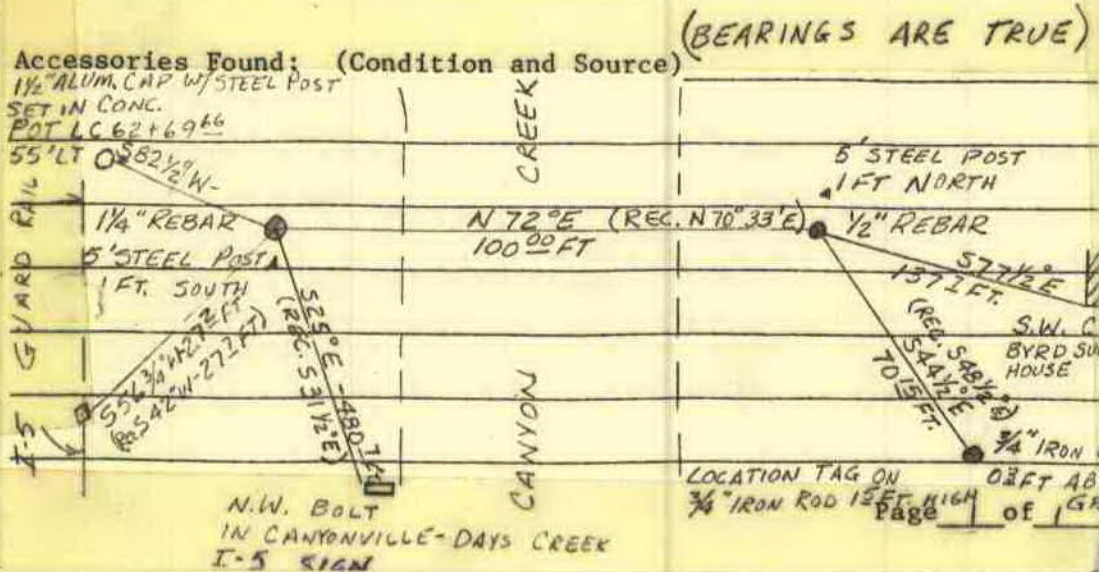 (BEARINGS ARE TRUE)
Accessories Found: (Condition and Source)
1½" ALUM. CAP W/ STEEL POST
SET IN CONC.
POT LC 62+69 66
55' LT
S82½°W-
GUARD RAIL
I-5
1¼" REBAR
5' STEEL POST
1 FT. SOUTH
S56¾°W
(REC. S31½°E)
S25°E -480
N.W. BOLT
IN CANYONVILLE-DAYS CREEK
I-5 SIGN
CREEK
CANYON
N 72°E (REC. N 70° 33'E)
100 00 FT
5' STEEL POST
1 FT NORTH
½" REBAR
S77½°E
137 FT.
S.W. C
BYRD
HOUSE
(REC. S48½°E)
S44½°E
70 15 FT.
¾" IRON
LOCATION TAG ON
¾" IRON ROD FT. HIGH
FT AB
Page 1 of 1